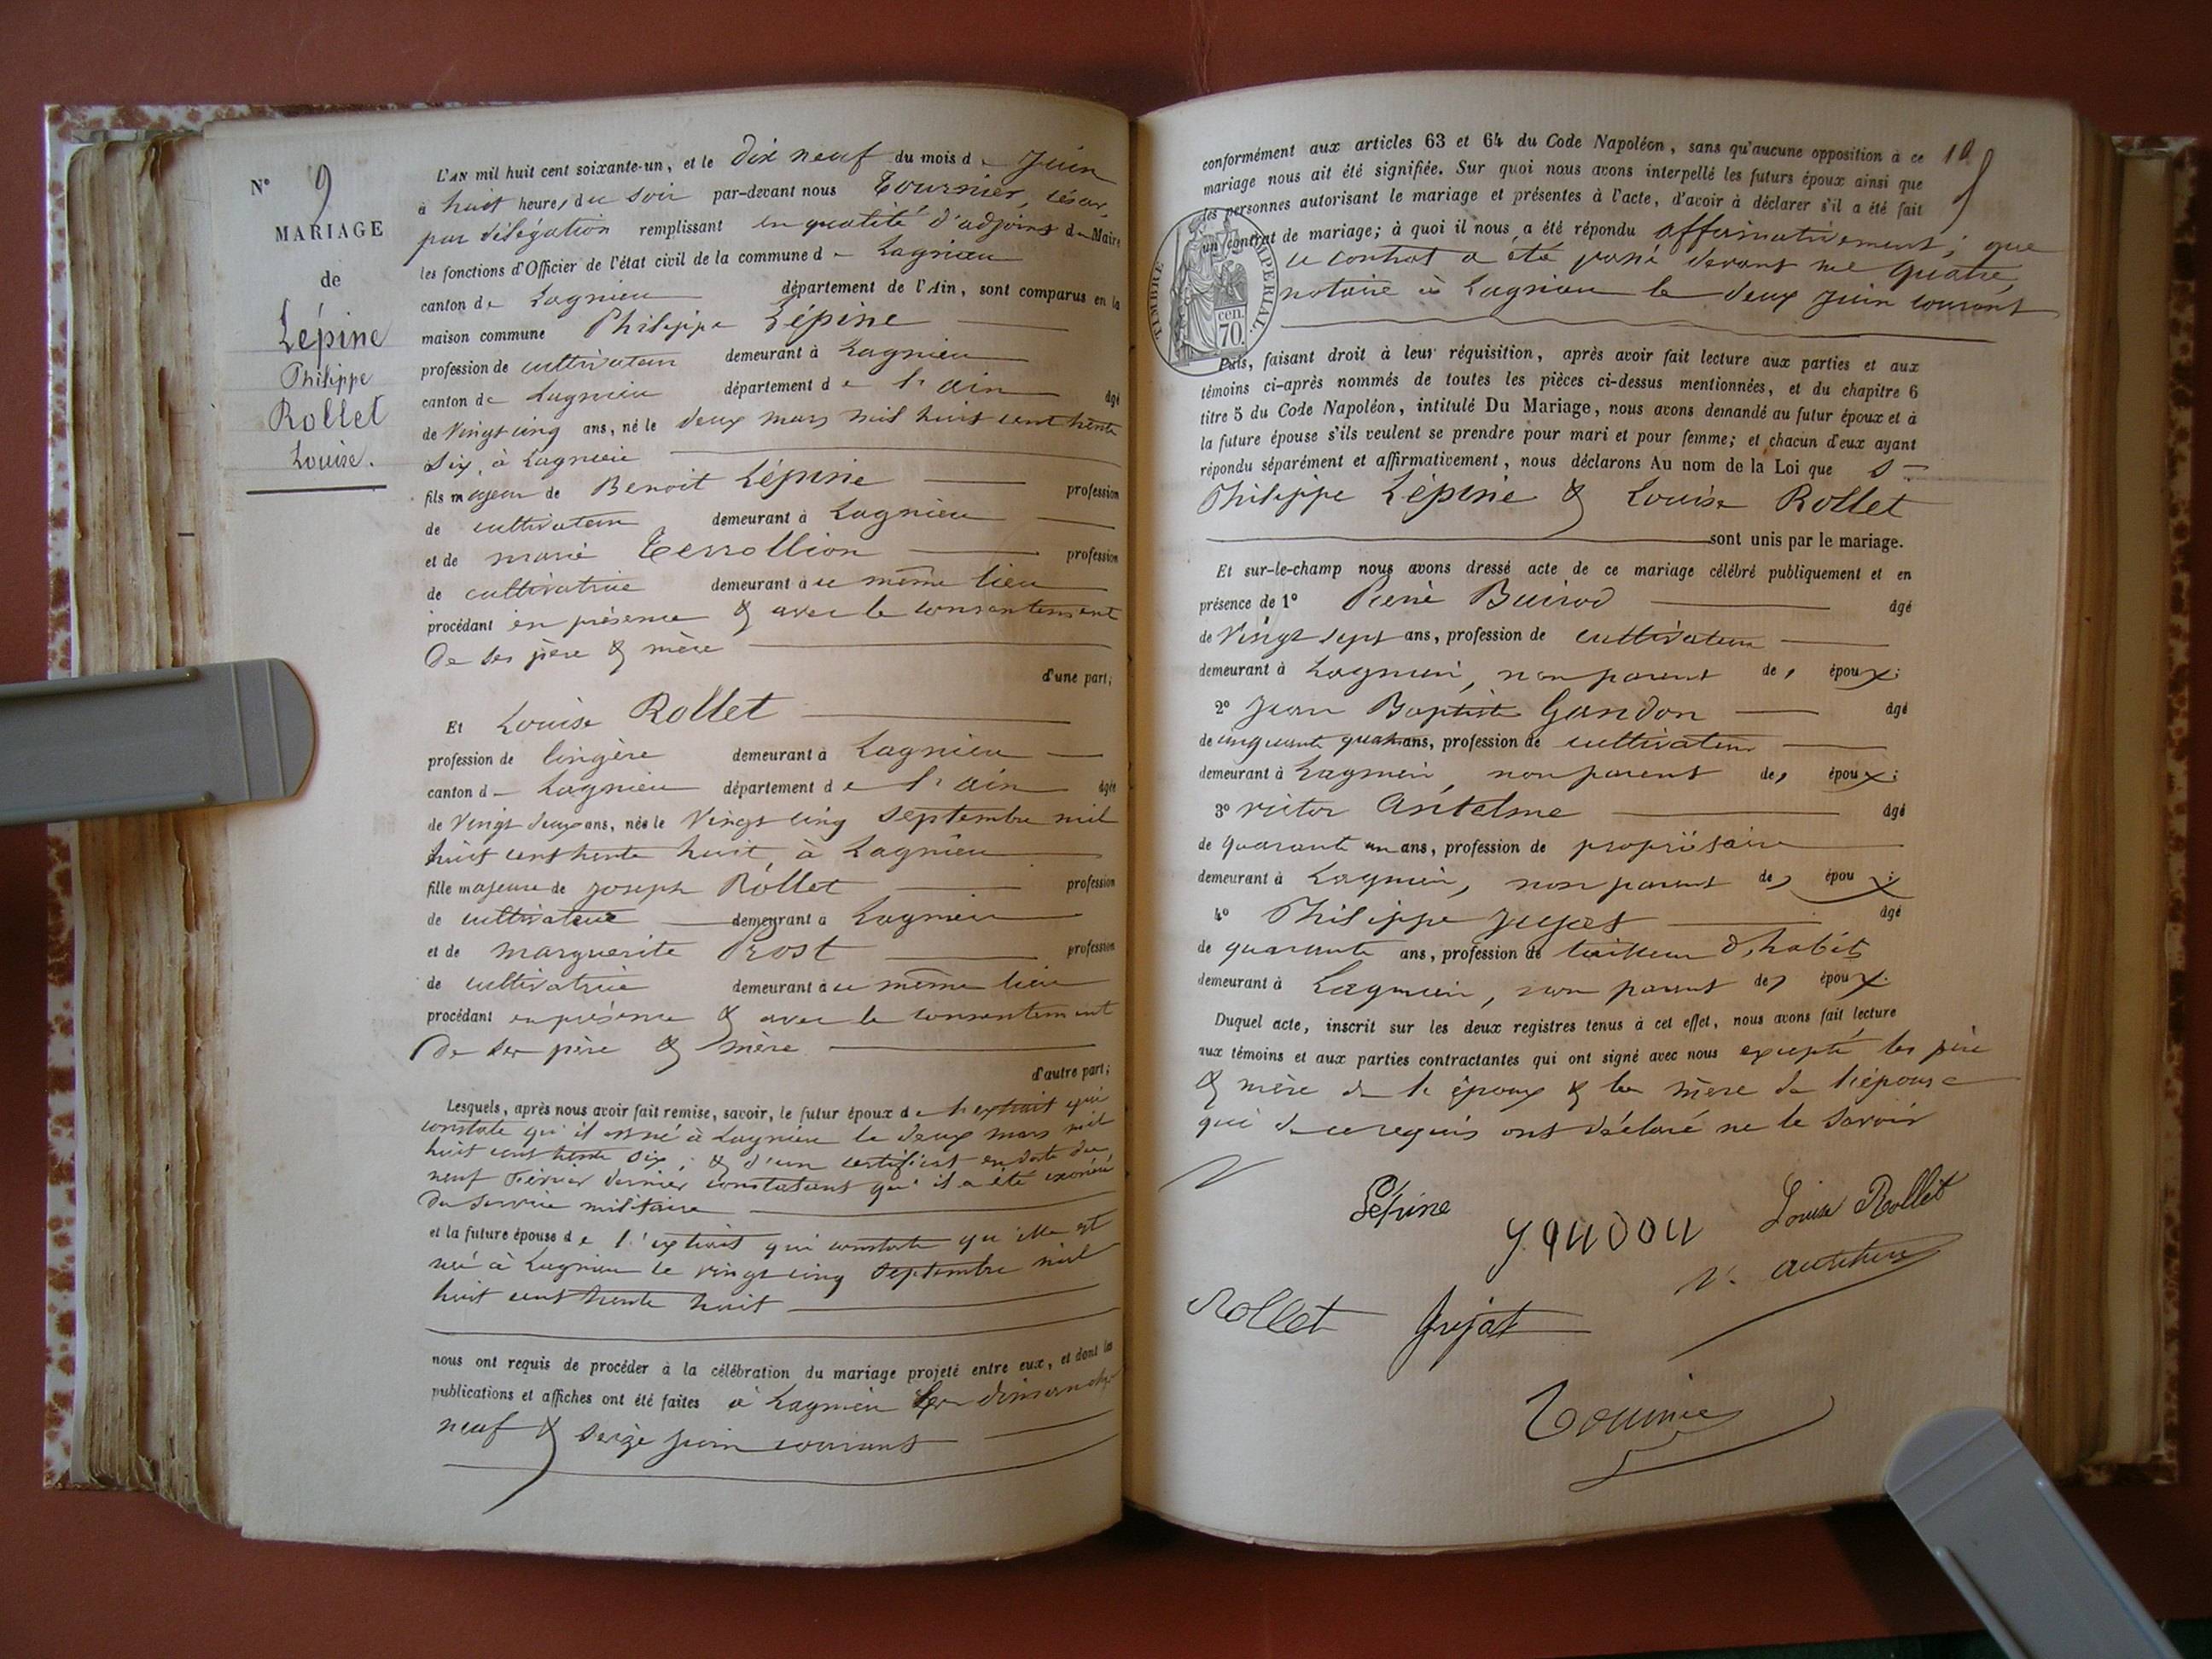 N° 9
MARIAGE
de
Lépine
Philippe
Rollet
Louise.
L'AN mil huit cent soixante-un, et le dix neuf du mois de Juin
à huit heures du soir par-devant nous Tournier, César,
par délégation remplissant en qualité d'adjoint du Maire
les fonctions d'Officier de l'état civil de la commune de Lagnieu
canton de Lagnieu département de l'Ain, sont comparus en la
maison commune Philippe Lépine
profession de cultivateur demeurant à Lagnieu
canton de Lagnieu département de l'ain âgé
de Vingt cinq ans, né le deux mars mil huit cent trente
six, à Lagnieu
fils majeur de Benoit Lépine profession
de cultivateur demeurant à Lagnieu
et de marie Terrollion profession
de cultivatrice demeurant à ce même lieu
procédant en présence & avec le consentement
De ses père & mère
d'une part;
Et Louise Rollet
profession de lingère demeurant à Lagnieu
canton de Lagnieu département de l'ain âgée
de Vingt deux ans, née le Vingt cinq septembre mil
huit cent trente huit, à Lagnieu
fille majeure de joseph Rollet profession
de cultivateur demeurant à Lagnieu
et de marguerite Prost profession
de cultivatrice demeurant à ce même lieu
procédant en présence & avec le consentement
De ses père & mère
d'autre part;
Lesquels, après nous avoir fait remise, savoir, le futur époux de l'extrait qui
constate qu'il est né à Lagnieu le deux mars mil
huit cent trente six; & d'un certificat en date du
neuf Février dernier constatant qu'il a été exonéré
du service militaire
et la future épouse de l'extrait qui constate qu'elle est
née à Lagnieu le vingt cinq septembre mil
huit cent trente huit
nous ont requis de procéder à la célébration du mariage projeté entre eux, et dont les
publications et affiches ont été faites à Lagnieu les dimanches
neuf & seize juin courant
conformément aux articles 63 et 64 du Code Napoléon, sans qu'aucune opposition à ce
mariage nous ait été signifiée. Sur quoi nous avons interpellé les futurs époux ainsi que
les personnes autorisant le mariage et présentes à l'acte, d'avoir à déclarer s'il a été fait
un contrat de mariage; à quoi il nous a été répondu affirmativement; que
ce contrat a été passé devant me Quatre,
notaire à Lagnieu le deux juin courant
TIMBRE IMPERIAL.
cen.
70.
Puis, faisant droit à leur réquisition, après avoir fait lecture aux parties et aux
témoins ci-après nommés de toutes les pièces ci-dessus mentionnées, et du chapitre 6
titre 5 du Code Napoléon, intitulé Du Mariage, nous avons demandé au futur époux et à
la future épouse s'ils veulent se prendre pour mari et pour femme; et chacun d'eux ayant
répondu séparément et affirmativement, nous déclarons Au nom de la Loi que
Philippe Lépine & Louise Rollet
sont unis par le mariage.
Et sur-le-champ nous avons dressé acte de ce mariage célébré publiquement et en
présence de 1° âgé
de Vingt sept ans, profession de cultivateur
demeurant à Lagnieu, non parent des époux;
2° Jean Baptiste Gandon âgé
de cinquante quatre ans, profession de cultivateur
demeurant à Lagnieu, non parent des époux;
3° victor Antelme âgé
de quarante un ans, profession de propriétaire
demeurant à Lagnieu, non parent des époux;
4° Philippe âgé
de quarante ans, profession de tailleur d'habits
demeurant à Lagnieu, non parent des époux.
Duquel acte, inscrit sur les deux registres tenus à cet effet, nous avons fait lecture
aux témoins et aux parties contractantes qui ont signé avec nous excepté les père
& mère de l'époux & la mère de l'épouse
qui de ce requis ont déclaré ne le savoir
Lépine
gandon
Louise Rollet
Rollet